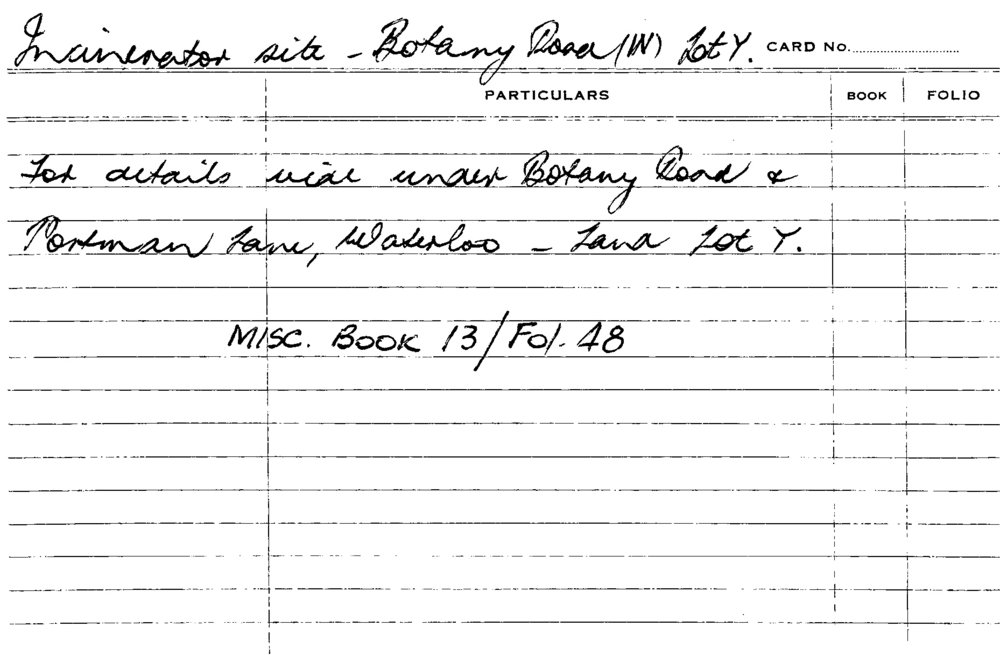 Incinerator site - Botany Road (W) Lot Y. CARD No.
PARTICULARS BOOK FOLIO
For details vide under Botany Road &
Portman Lane, Waterloo - Land Lot Y.
MISC. BOOK 13/Fol. 48